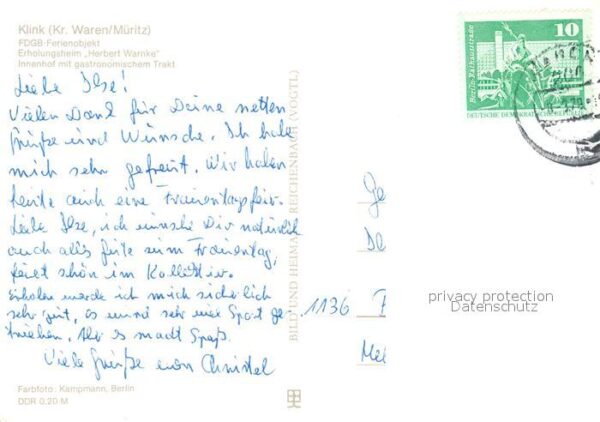 Klink (Kr. Waren/Müritz)
FDGB-Ferienobjekt
Erholungsheim „Herbert Warnke"
Innenhof mit gastronomischem Trakt
Liebe Ilse!
Vielen Dank für Deine netten
Grüße und Wünsche. Ich habe
mich sehr gefreut. Wir haben
heute auch eine Frauentagsfeier.
Liebe Ilse, ich wünsche Dir natürlich
auch alles Gute zum Frauentag,
feiert schön im Kollektiv.
Erholen werde ich mich sicherlich
sehr gut, es wird sehr viel Sport ge
trieben. Aber es macht Spaß.
Viele Grüße von Christel
Farbfoto: Kampmann, Berlin
DDR 0,20 M
BILD UND HEIMAT REICHENBACH (VOGTL)
Berlin, Rathausstraße
10
DEUTSCHE DEMOKRATISCHE REPUBLIK
1136
privacy protection
Datenschutz